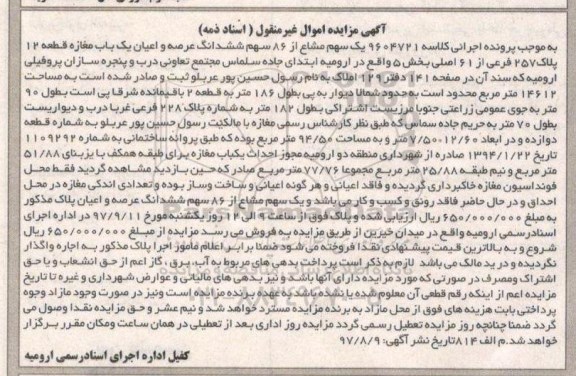 آگهی مزایده اموال غیرمنقول ( اسناد ذمه)
به موجب پرونده اجرائی کلاسه ۹۶۰۴۷۲۱ یک سهم مشاع از ۸۶ سهم ششدانگ عرصه و اعیان یک باب مغازه قطعه ۱۲
پلاک ۲۵۷ فرعی از ۶۱ اصلی بخش ۵ واقع در ارومیه ابتدای جاده سلماس مجتمع تعاونی درب و پنجره سازان پروفیلی
ارومیه که سند آن در صفحه ۱۴۱ دفتر ۱۲ املاک به نام رسول حسین پور عربلو ثبت و صادر شده است به مساحت
۱۴۶۱۲ متر مربع محدود است به حدود شمالا دیوار به پی بطول ۱۸۶ متر به قطعه ۲ باقیمانده شرقا پی است بطول ۹۰
متر به جوی عمومی زراعتی جنوبا مرزیست اشتراکی بطول ۱۸۲ متر به شماره پلاک ۲۲۸ فرعی غربا درب و دیواریست
بطول ۷۰ متر به حریم جاده سماس که طبق نظر کارشناس رسمی مغازه با مالکیت رسول حسین پور عربلو به شماره قطعه
دوازده و در ابعاد ۷/۵۰۰۱۲/۶۰ متر و به مساحت ۹۴/۵۰ متر مربع بوده که طبق پروانه ساختمانی به شماره ۱۱۰۹۲۹۲
تاریخ ۱۳۹۴/۱/۲۲ صادره از شهرداری منطقه دو ارومیه مجوز احداث یکباب مغازه برای طبقه همکف با یزبنای ۵۱/۸۸
متر مربع و نیم طبقه ۲۵/۸۸ متر مربع مجموعا ۷۷/۷۶ متر مربع صادر که حین بازدید مشاهده گردید فقط محل
فونداسیون مغازه خاکبرداری گردیده و فاقد اعیانی و هر گونه اعیانی و ساخت وساز بوده و تعدادی اندکی مغازه در محل
احداق و در حال حاضر فاقد رونق و کسب و کار می باشد و یک سهم مشاع از ۸۶ سهم ششدانگ عرصه و اعیان پلاک مذکور
به مبلغ ۶۵۰/۰۰۰/۰۰۰ ریال ارزیابی شده و پلاک فوق از ساعت ۹ الی ۱۲ روز یکشنبه مورخ ۹۷/۹/۱۱ در اداره اجرای
اسنادرسمی ارومیه واقع در میدان خیزین از طریق مزایده به فروش می رسد مزایده از مبلغ ۶۵۰/۰۰۰/۰۰۰ ریال
شروع و به بالاترین قیمت پیشنهادی نقدا فروخته می شود ضمنا برابر اعلام مامور اجرا پلاک مذکور به اجاره واگذار
نگردیده و در ید مالک می باشد لازم به ذکر است پرداخت بدهی های مربوط به آب، برق، گاز اعم از حق انشعاب و یا حق
اشتراک ومصرف در صورتی که مورد مزایده دارای آنها باشد و نیز بدهی های مالیاتی و عوارض شهرداری و غیره تا تاریخ
مزایده اعم از اینکه رقم قطعی آن معلوم شده یا نشده باشد به عهده برنده مزایده است ونیز در صورت وجود مازاد وجوه
پرداختی بابت هزینه های فوق از محل مازاد به برنده مزایده مسترد خواهد شد و نیم عشر و حق مزایده نقدا وصول می
گردد ضمنا چنانچه روز مزایده تعطیل رسمی گردد مزایده روز اداری بعد از تعطیلی در همان ساعت ومکان مقرر برگزار
خواهد شد.م الف ۸۱۴ تاریخ نشر آگهی: ۹۷/۸/۹
کفیل اداره اجرای اسنادرسمی ارومیه